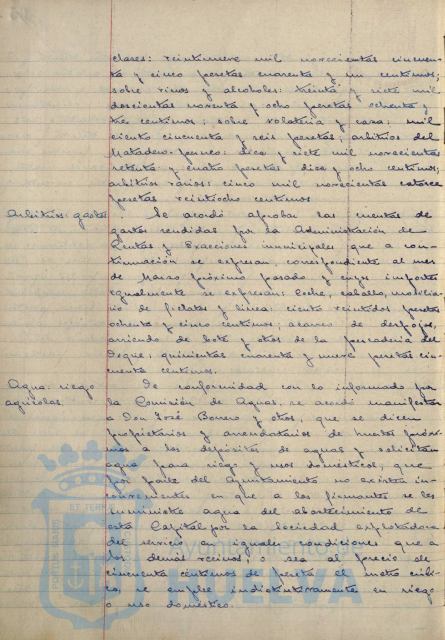 clases: veintinueve mil novecientas cincuen-
ta y cinco pesetas cuarenta y un centimos;
sobre vinos y alcoholes: treinta y siete mil
doscientas noventa y ocho pesetas ochenta y
tres centimos; sobre volateria y caza: mil
ciento cincuenta y seis pesetas; arbitrios del
Matadero: pesneo: diez y siete mil novecientas
setenta y cuatro pesetas diez y ocho centimos;
arbitrios varios: cinco mil novecientas catorce
pesetas veintiocho centimos.
Arbitrios: gastos
Se acordó aprobar las cuentas de
gastos rendidas por la Administración de
Rentas y Exacciones municipales que a con-
tinuación se expresan, correspondiente al mes
de Marzo próximo pasado y cuyos importes
igualmente se expresan: Coche, caballo, mobilia-
rio de fielatos y linea: ciento veintidos pesetas
ochenta y cinco centimos; acarreo de despojos,
arriendo de bote y otros de la pescaderia del
Dique: quinientas cuarenta y nueve pesetas cin-
cuenta centimos.
Agua: riego
agricolas.
De conformidad con lo informado por
la Comisión de Aguas, se acordó manifestar
a Don José Borrero y otros, que se dicen
propietarios y arrendatarios de huertos próxi-
mos a los depósitos de aguas y solicitan
agua para riego y usos domésticos, que
por parte del Ayuntamiento no existen in-
convenientes en que a los firmantes se les
suministre agua del abastecimiento de
esta Capital por la Sociedad explotadora
del servicio, en iguales condiciones que a
los demás vecinos, o sea al precio de
cincuenta centimos de peseta el metro cúbi-
co, se emplee indistintamente en riego
o uso doméstico.
Ayuntamiento de
HUELVA